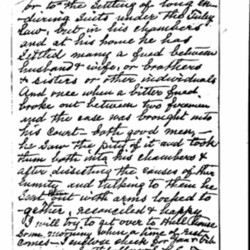 for to the settling of long en-
during suits under the
law, but in his chambers
and at his home he has
settled many a feud between
husband & wife, or brothers
& sisters or other individuals
And once when a bitter feud
broke out between two foremen
and the case was brought into
his court - both good men, -
he saw the pity of it and took
them both into his chambers &
after dissecting the causes of their
enmity and talking to them he
sent out with arms locked to-
gether, reconciled & happy
I will try to get one to White House
some morning when a time of
comes - I enclose check for